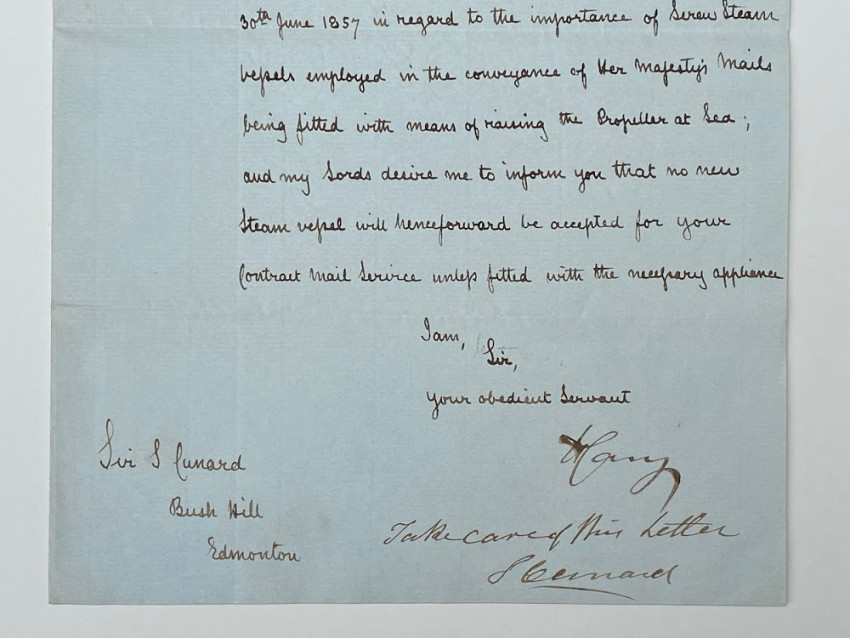 30th June 1857 in regard to the importance of Screw Steam
vessels employed in the conveyance of Her Majesty's Mails
being fitted with means of raising the Propeller at Sea;
and my Lords desire me to inform you that no new
Steam vessel will henceforward be accepted for your
Contract Mail Service unless fitted with the necessary appliance
I am,
Sir,
Your obedient Servant
Sir S Cunard
Bush Hill
Edmonton
Take care of this Letter
S Cunard